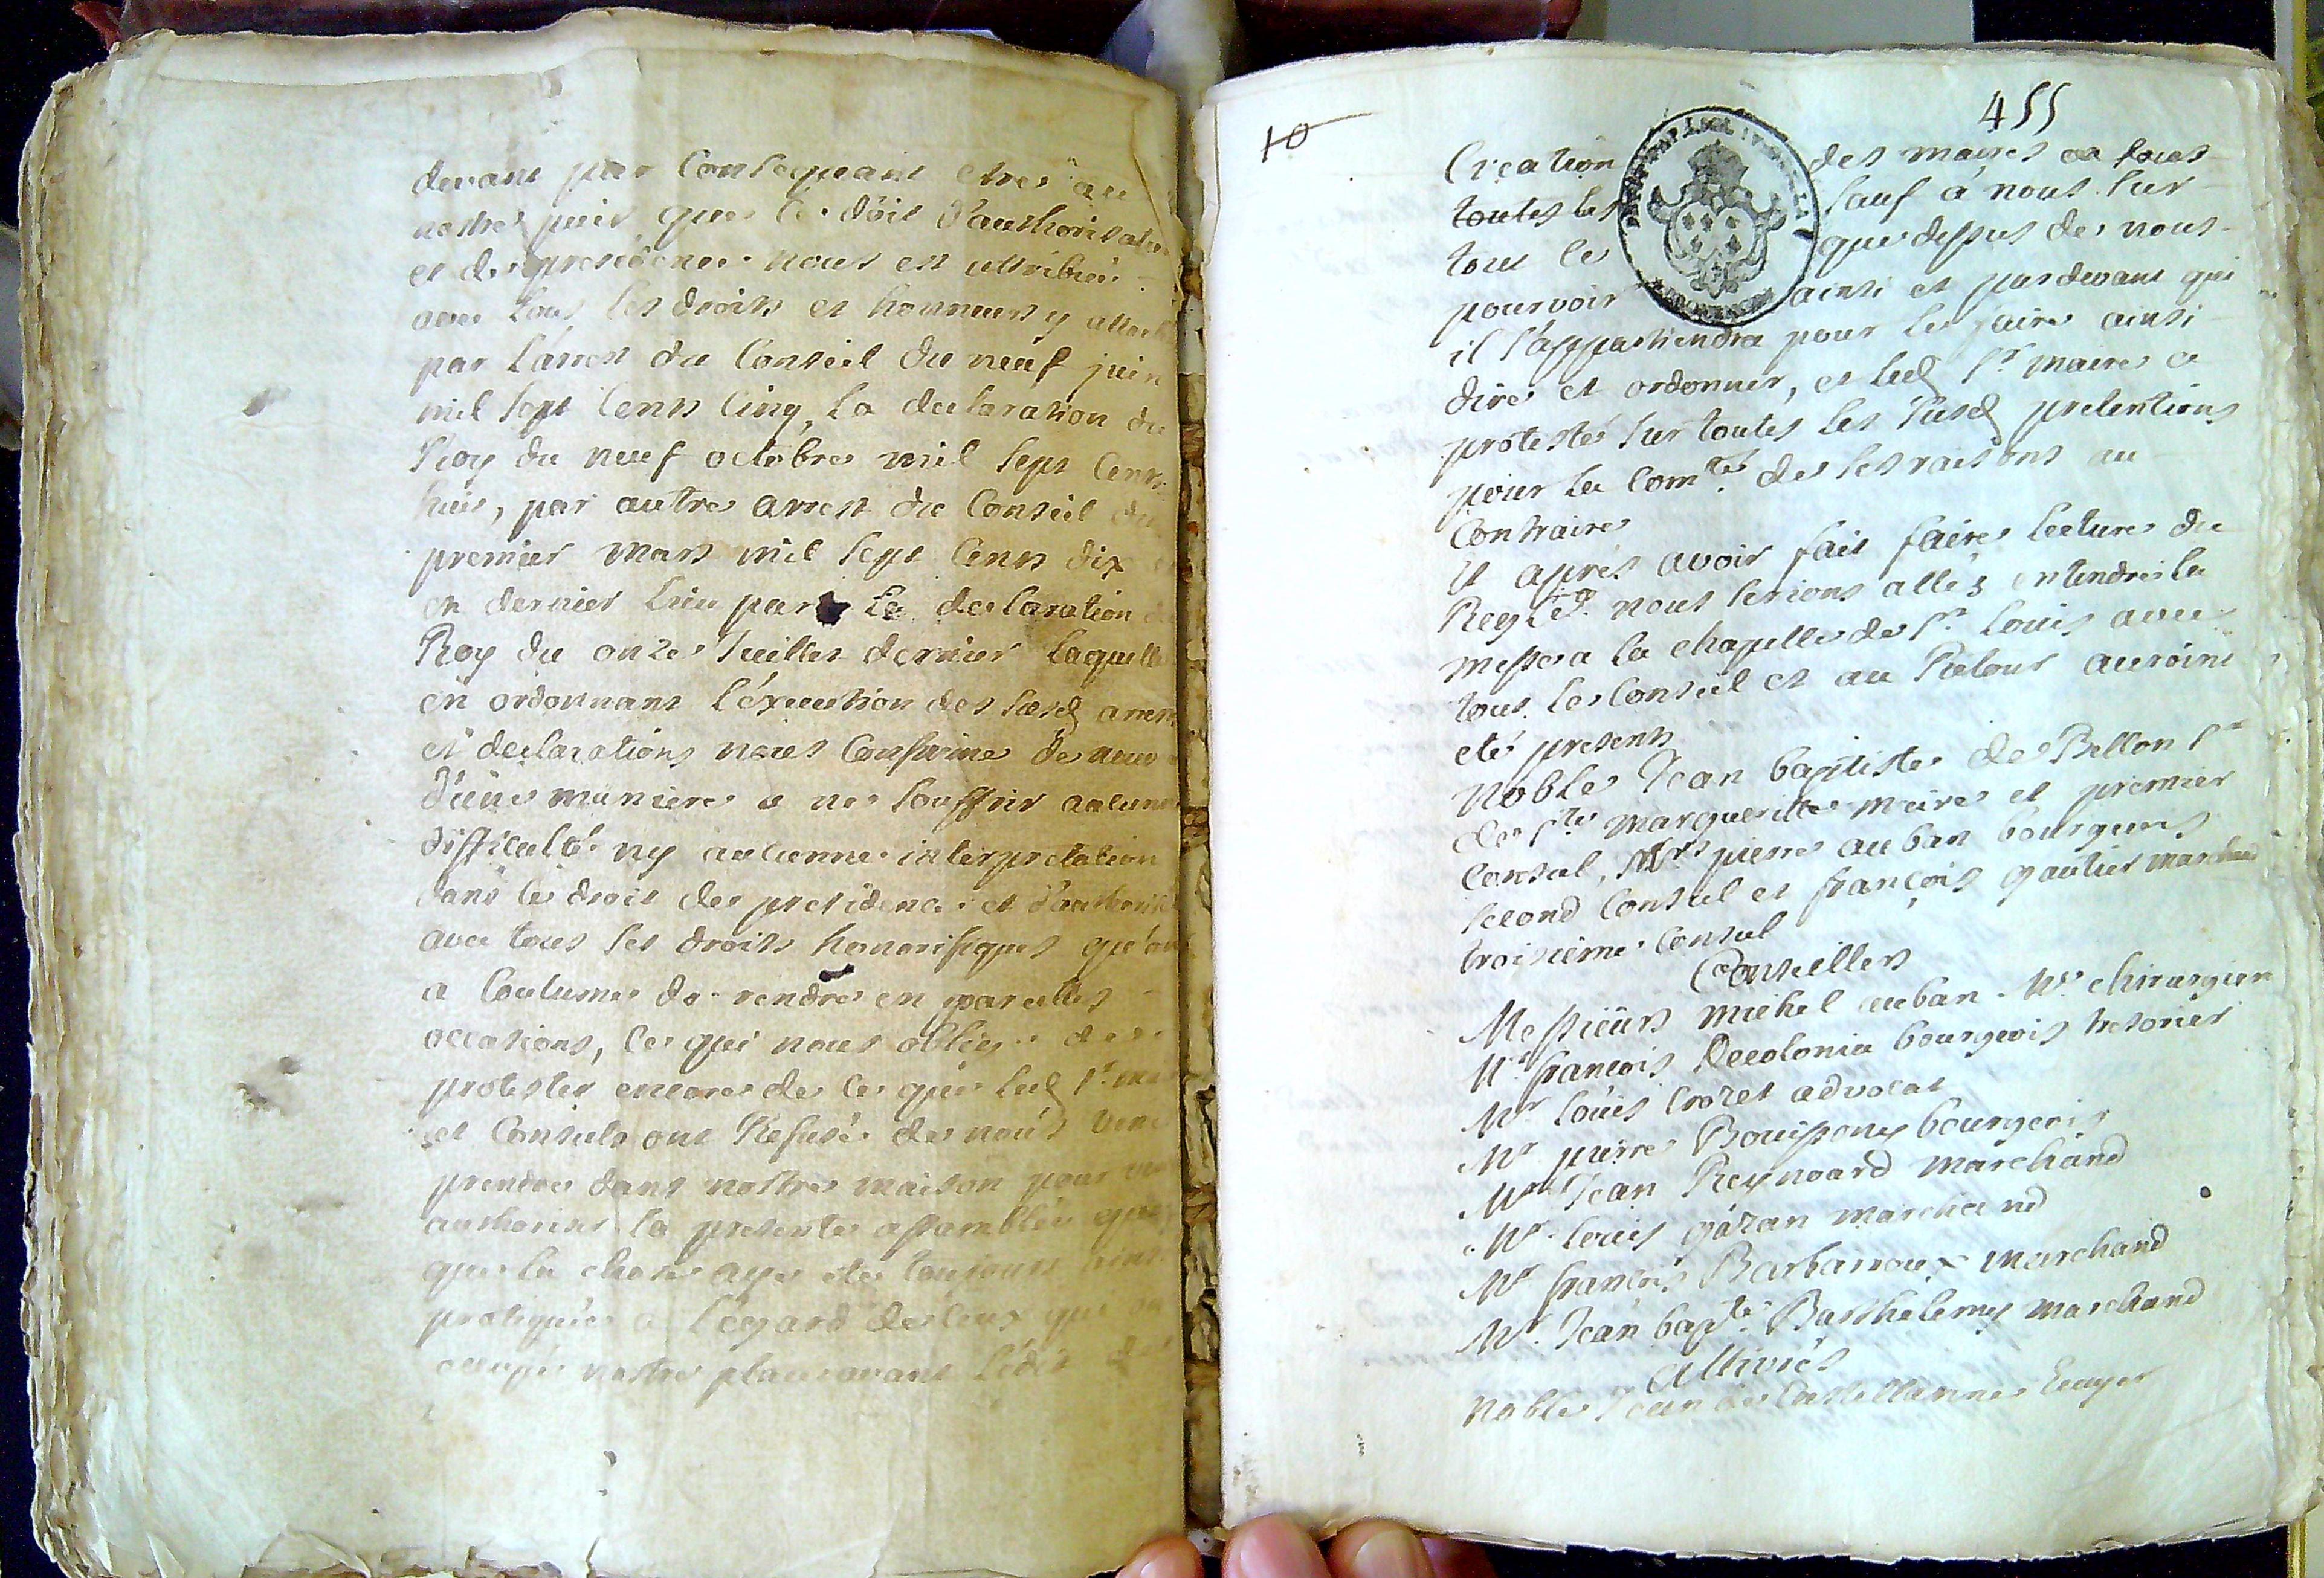 devant par Consequant etre au
nostre puis que le droit d'authorisation
et de presidence nous est attribué
avec tous les droits et honneurs y
par L'arrest du Conseil du neuf juin
mil sept Cents Cinq, La declaration du
Roy du neuf octobre mil sept Cents
huit, par autre arrest du Conseil du
premier Mars mil sept Cents dix
en dernier lieu par La declaration
Roy du onze Juillet dernier Laquelle
en ordonnant L'execution des susd arrests
et declarations nous Confirme de
d'une maniere a ne souffrir aucune
difficulté ny aucunne interpretation
dans le droit de presidence et d'authorité
avec tous les droits honorifiques qu'on
a Coutume de rendre en pareilles
occasions, Ce qui nous oblige de
protester encore de ce que Led Sr
et Consuls ont Refusé de nous
prendre dans nostre maison pour
authoriser la presente assemblée
que la chose aye eté toujours
pratiquée a L'egard de ceux qui
occupé nostre place avant L'edit de
10
455
Creation des maires a tous
toutes les sauf à nous sur
tout ce que dessus de nous
pourvoir ainsi et pardevant qui
il s'appartiendra pour les faire ainsi
dire et ordonner, et Led Sr maire a
protesté sur toutes les susd pretentions
pour la Comté de ses raisons au
Contraire
Et aprés avoir fait faire lecture du
nous serions allés entendre la
messe a la chapelle de St Louis avec
tout Le Conseil et au Retour auroint
eté presents
Noble Jean baptiste de Bellon Sr
de Ste Margueritte maire et premier
Consul, Mrs pierre auban bourgeois
second Consul et françois gautier marchand
troisieme Consul
Conseillers
Messieurs michel auban Me chirurgien
Mr francois Decolonia bourgeois tresorier
Mr Louis Crozet advocat
Mr pierre Bouissony bourgeois
Mr Jean Reynoard marchand
Mr Louis gazan marchand
Mr francois Barbarroux marchand
Mr Jean bapte Barthelemy marchand
Allivrés
Noble Jean de Castellanne Ecuyer